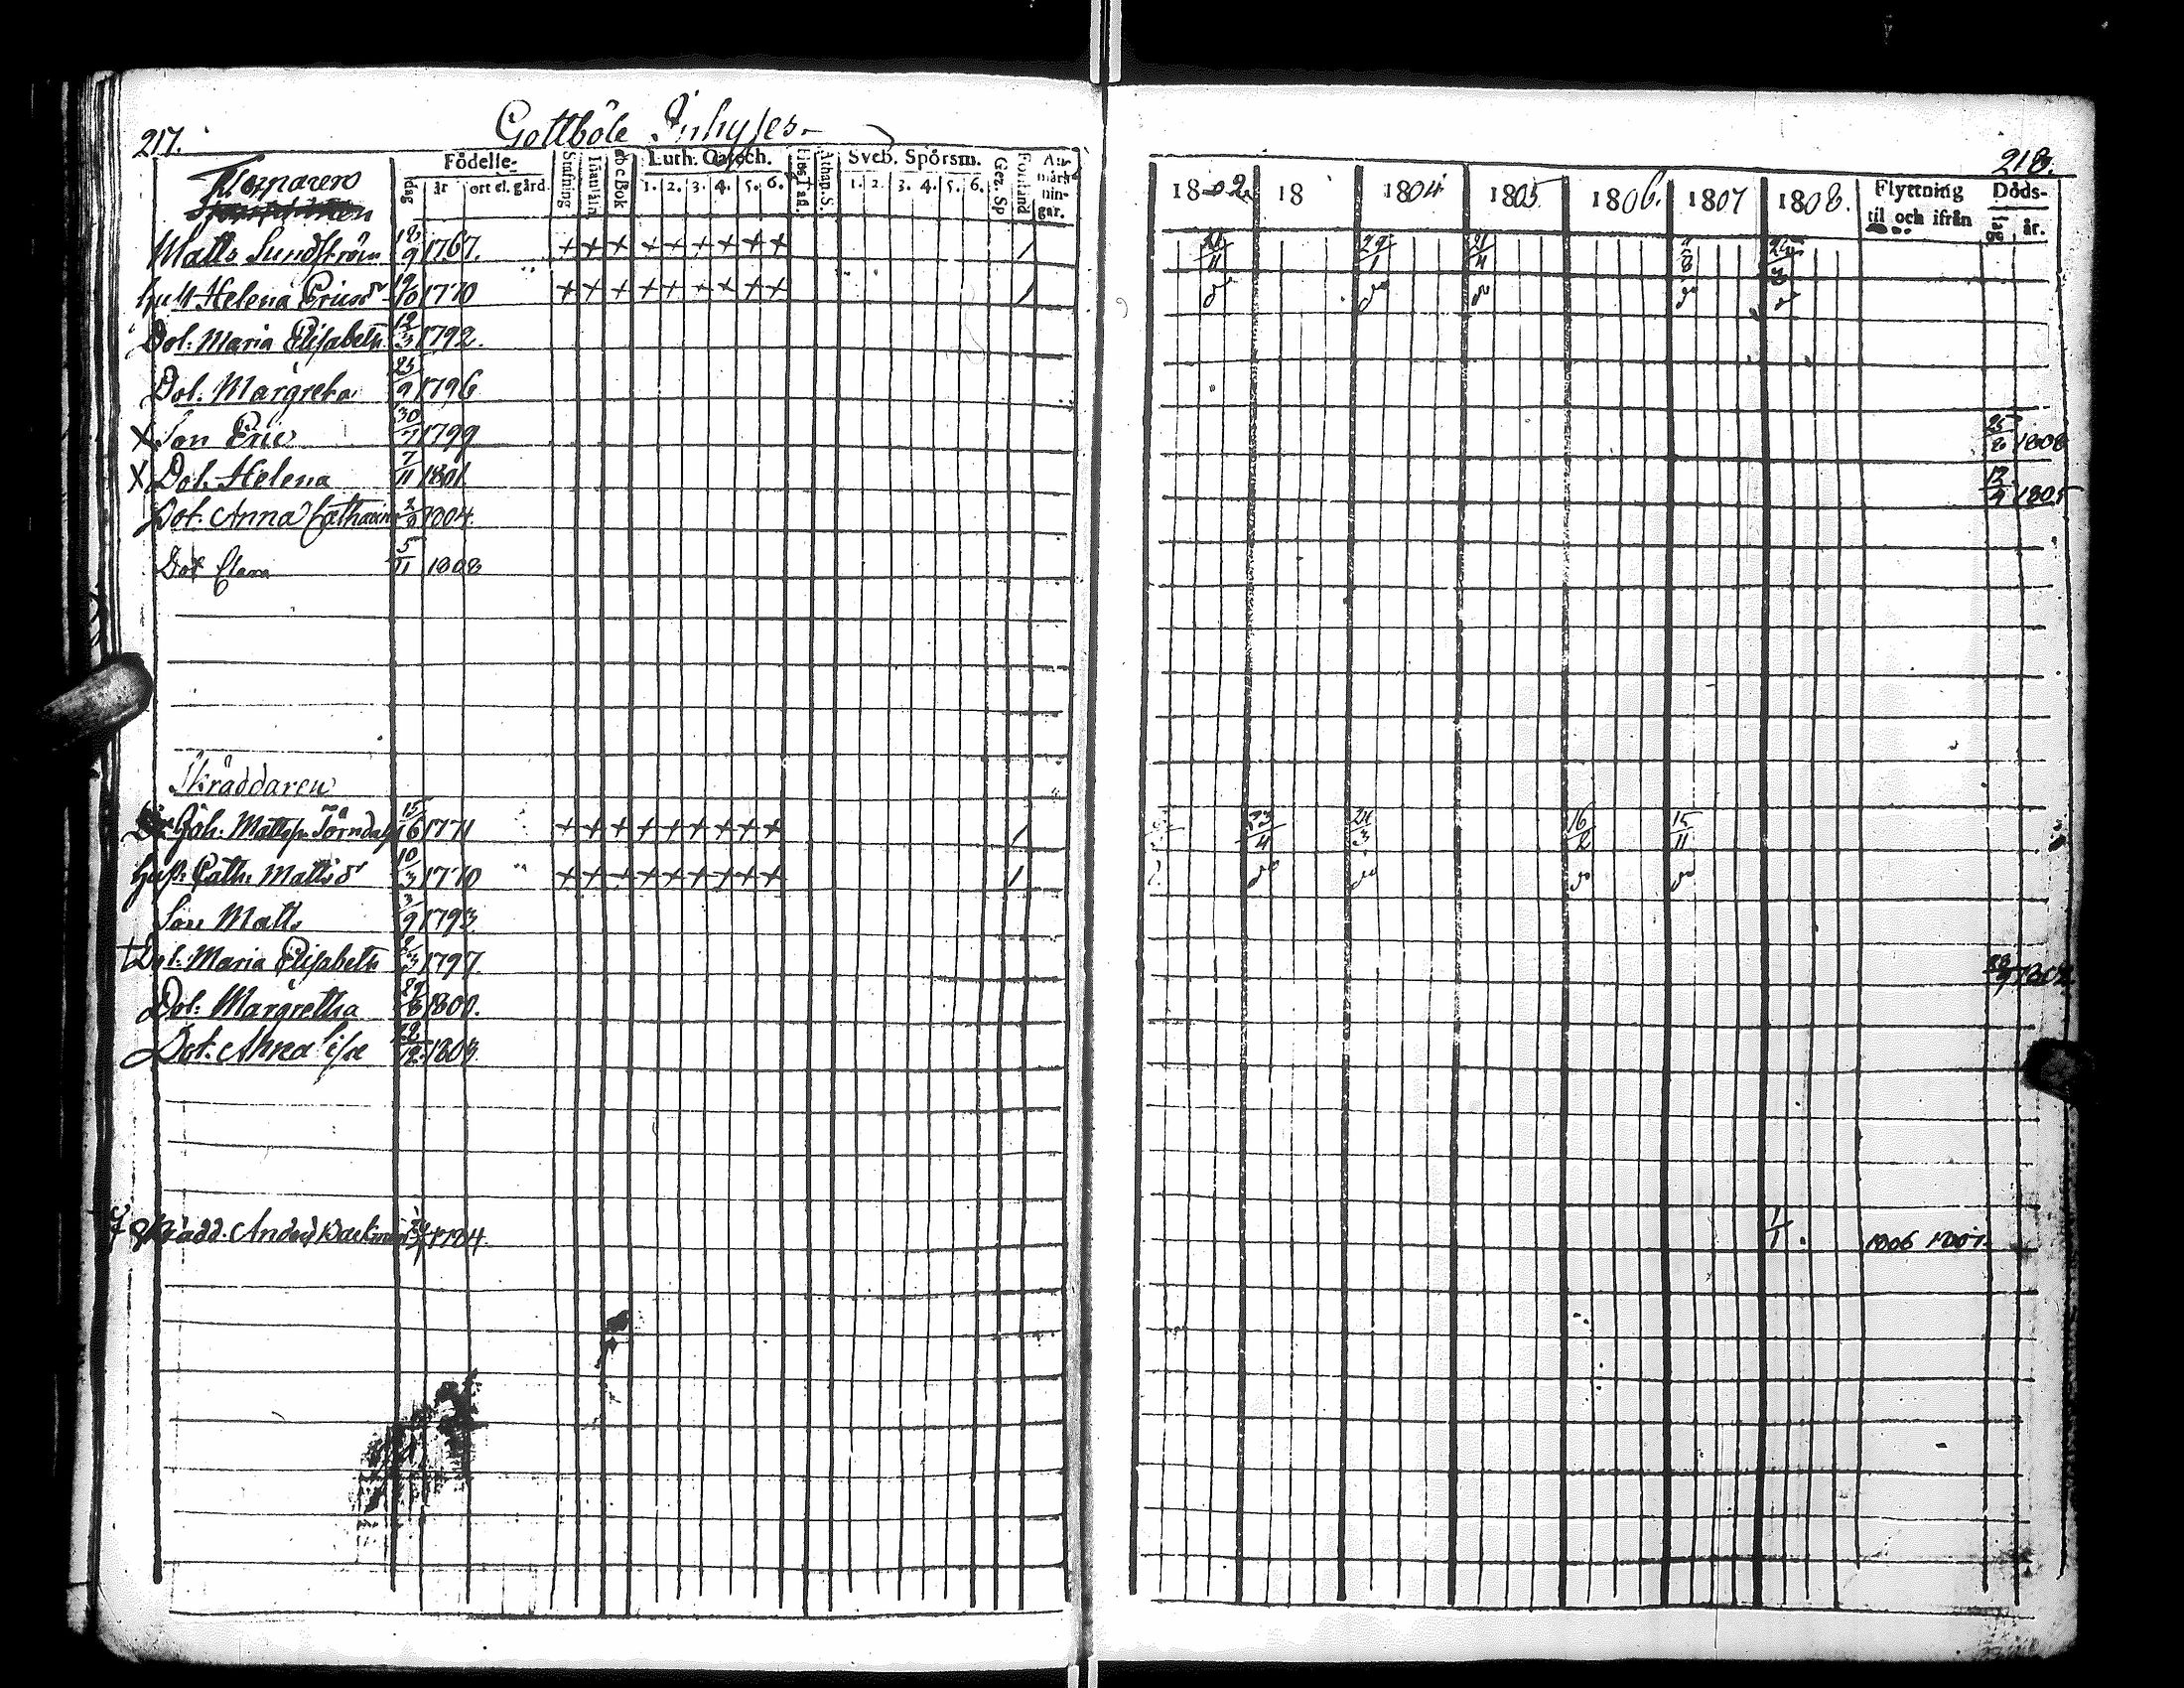 217.
Gottböle Inhyses
Födelse-
dag år ort el. gård.
Stafning Innanläsn a b c Bok Luth. Catech. 1. 2. 3. 4. 5. 6. Athan. S. Sveb. Spörsm. 1. 2. 3. 4. 5. 6. Gez. Sp Förstånd Anmärkningar.
Matts Sundström 18/9 1767. + + + + + + + + + /
Hust Helena Ericsdr 19/10 1770 + + + + + + + + + /
Dot. Maria Elisabeth 12/3 1792.
Dot. Margreta 1796
X Son Eric 30/7 1799
X Dot. Helena 7/11 1801
Dot. Anna Catharina 1804.
Dot Clara 5/11 1808
Skräddaren
Joh. Mattss. Törndahl 15/6 1771 + + + + + + + + + /
Hust: Cath. Mattsdr 10/3 1770 + + + + + + + + + /
Son Matts 3/9 1793
† Dot. Maria Elisabeth 1797.
Dot: Margretha 1800.
Dot. Anna Lisa 1803.
Skrädd. Anders Backman 1784.
218.
1802 18 1804 1805 1806. 1807 1808. Flyttning til och ifrån Döds- dag år.
21/11 21/4
do do do do do
25/8 1808
12/4 1805
23/4 21/3 16/2 15/11
do do do do
1/1 1806